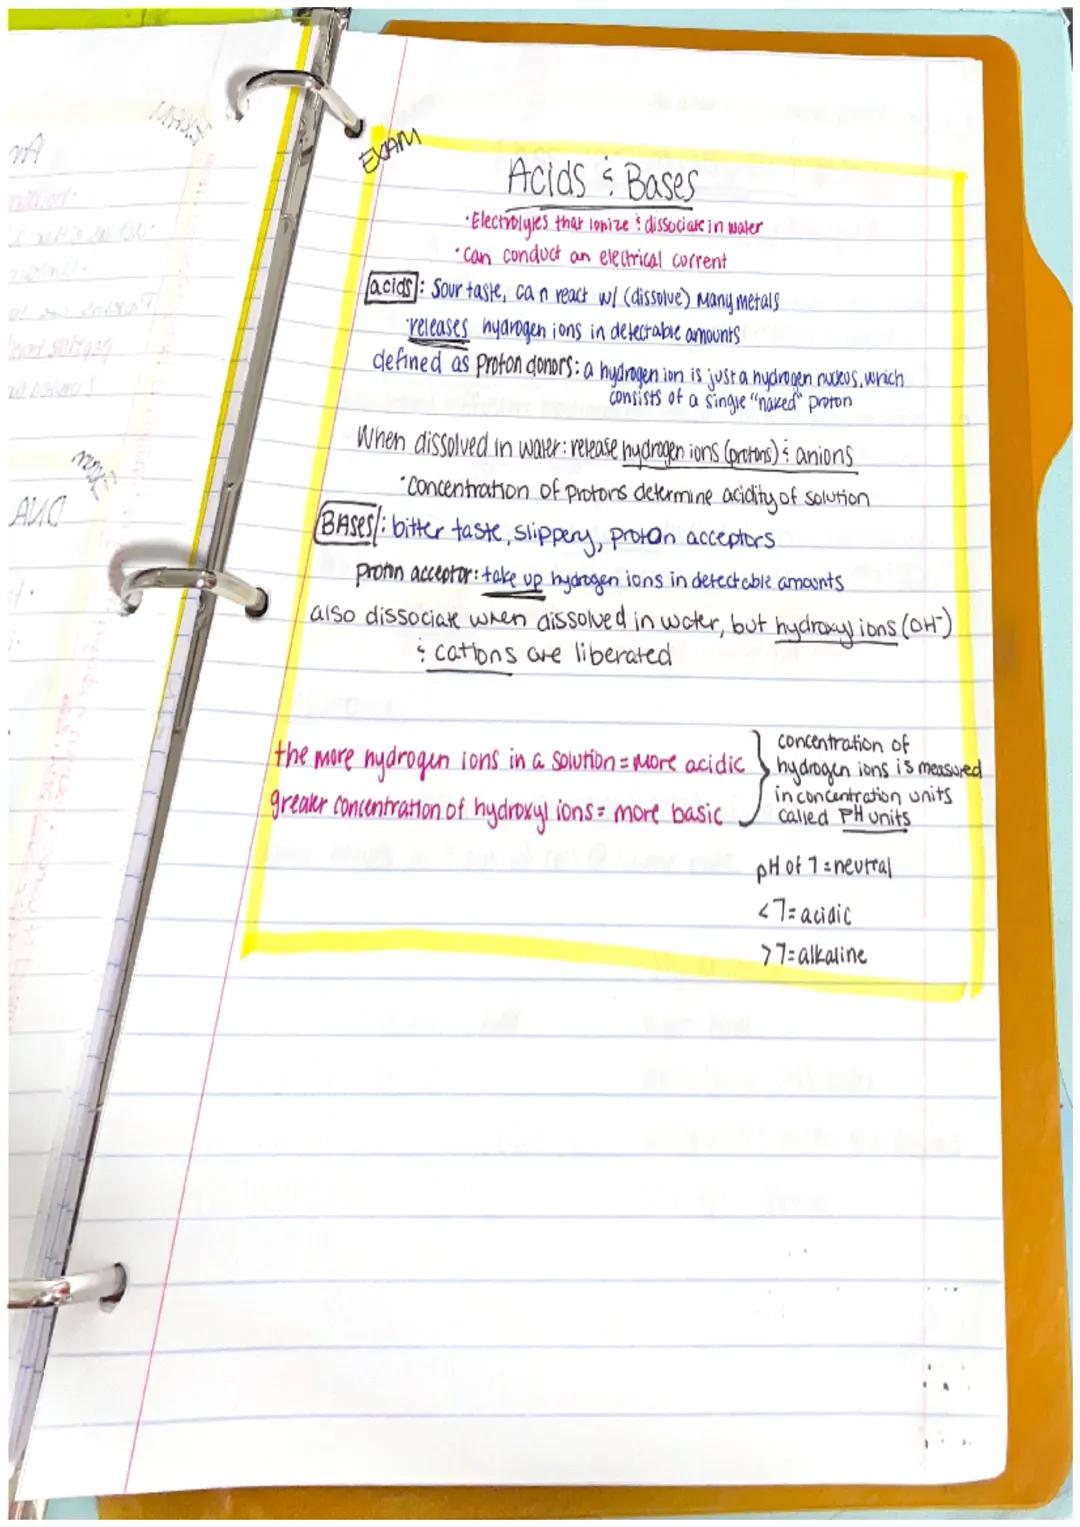 EXAM
Acids & Bases
·Electrolytes that ionize & dissociate in water
·can conduct an electrical current
acids: Sour taste, can react w/ (dissolve) many metals
·releases hydrogen ions in detectable amounts
defined as proton donors: a hydrogen ion is just a hydrogen nucleus, which
consists of a single "naked" proton
When dissolved in water: release hydrogen ions (protons) & anions
·Concentration of protons determine acidity of solution
BASES: bitter taste, slippery, proton acceptors
proton acceptor: take up hydrogen ions in detectable amounts
also dissociate when dissolved in water, but hydroxyl ions (OH-)
& cations are liberated
the more hydrogen ions in a solution = more acidic
greater concentration of hydroxyl ions = more basic
concentration of
hydrogen ions is measured
in concentration units
called PH units
pH of 7 = neutral
<7 = acidic
>7 = alkaline
EXAM
Exam
DNA